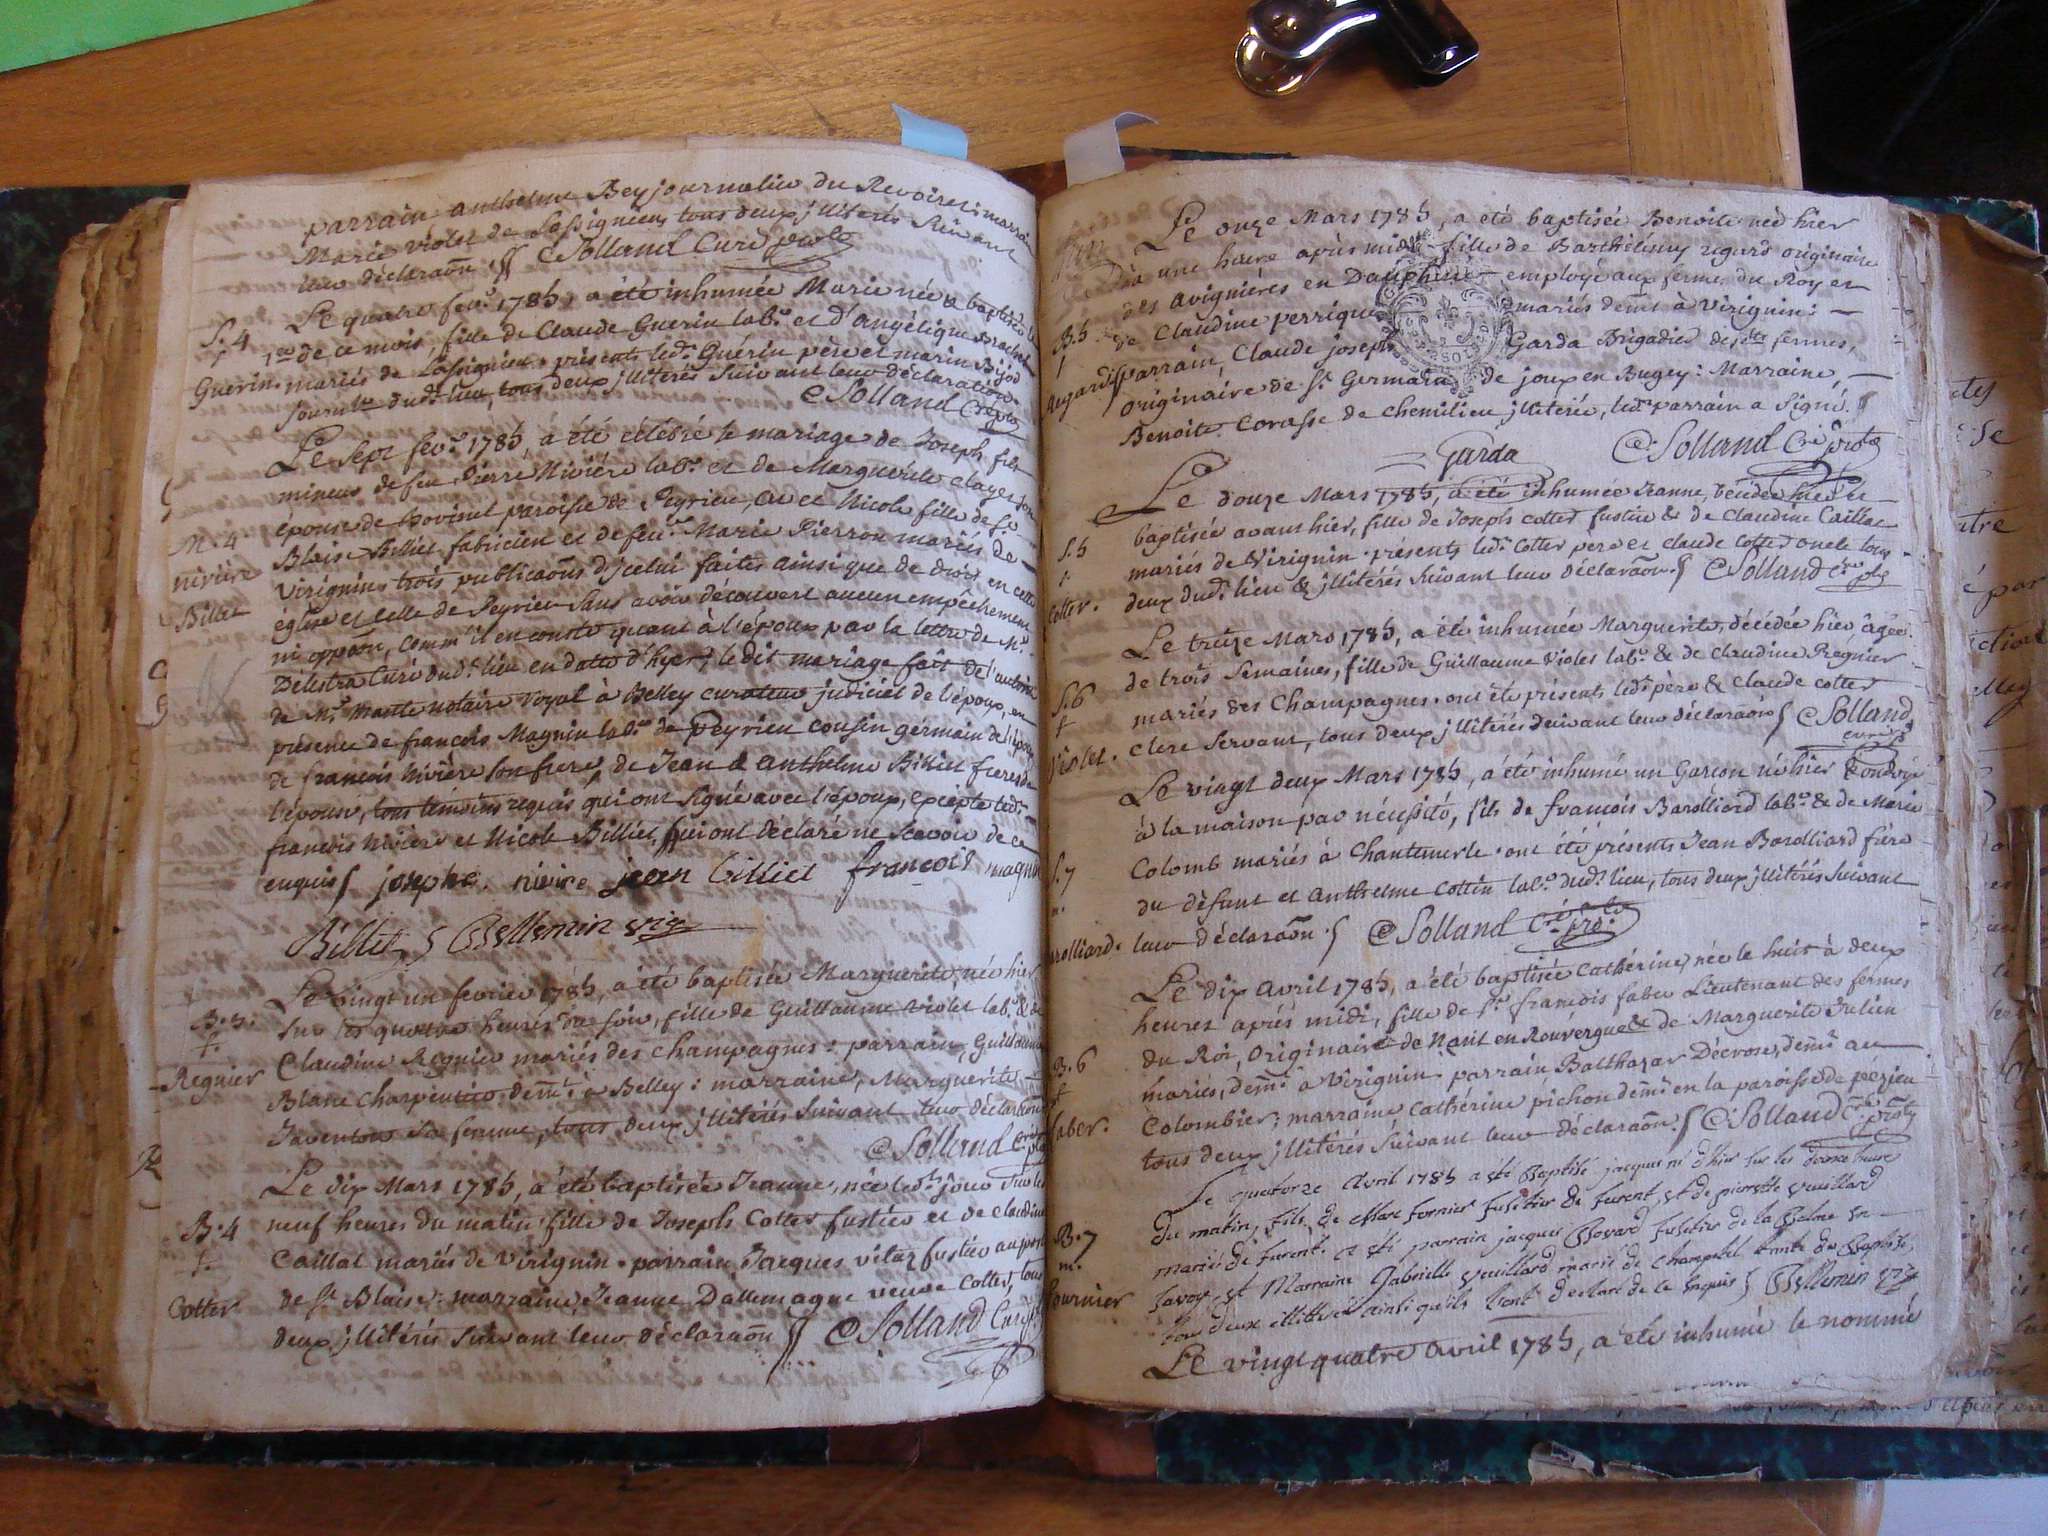 parrain anthelme Bey journalier du Revoiret: marraine
Marie violet de Lassignieu, tous deux jllitérés suivant
leur déclaraõn C Solland Curé
Le quatre fev.r 1785, a été inhumée Marie née & baptisée le
S. 4
1.er de ce mois, fille de Claude Guerin lab.r et d'angélique Brachet
Guerin. mariés de Lassignieu. présents led. Guérin père et marin Bijod
journ.er dud. lieu, tous deux jllitérés suivant leur déclaration.
C Solland
Le sept fev.r 1785, a été célébré le mariage de Joseph fils
mineur de feu Pierre Nivière lab.r et de Marguerite clayet son
épouse de Bovinel paroisse de Peyrieu, av et Nicole fille de S.r
M. 4
Blaise Billiet fabricien et de feu Marie Pierron mariés de
nivière
Virignin, trois publicaõns d'jcelui faites ainsi que de droit en cette
Billet
église et celle de Peyrieu sans avoir découvert aucun empêchement
ni oppõon, comm' il en conste quant à l'époux par la lettre de M.r
Délestra Curé dud. lieu en datte d'hyer; le dit mariage fait de l'autorité
de M.r Mante notaire royal à Belley curateur judiciel de l'époux, en
présence de françois Magnin lab.r de Peyrieu cousin germain de l'époux
de françois nivière son frere, de Jean & anthelme Billiet freres de
l'épouse, tous témoins requis qui ont signé avec l'époux, excepté led.
françois nivière et Nicole Billiet qui ont déclaré ne sçavoir de ce
enquis josephe. nivire jean billiet françois magnin
Billiet Bellemin vic
Le vingt un fevrier 1785, a été baptisée Marguerite, née hier
B. 3.
f.
sur les quatre heures du soir, fille de Guillaume Violet lab.r & de
Claudine Regnier mariés des champagnes: parrain, Guillaume
Regnier
Blanc charpentier dem.t à Belley: marraine, Marguerite
Javenton sa femme, tous deux jllitérés suivant leur déclaraõn
C Solland
Le dix Mars 1785, a été baptisée Jeanne, née led. jour sur les
B. 4
neuf heures du matin fille de Joseph Cotter fustier et de claudine
f.
Caillat mariés de virignin. parrain, Jacques vitaz fustier au port
Cotter
de S.t Blaise: marraine, Jeanne Dallemagne veuve Cotter, tous
deux jllitérés suivant leur déclaraõn C Solland Curé
Le onze Mars 1785, a été baptisée Benoite née hier
à une heure après midi fille de Barthélemy regard originaire
des avignières en Dauphiné employé aux fermes du Roy et
B. 5
de Claudine perrique mariés dem.t à virignin:
f
Regard
parrain, Claude joseph Garda Brigadier desd.tes fermes,
originaire de S.t Germain de joux en Bugey: Marraine,
Benoite Corasse de chemilieu jllitérée, led. parrain a signé.
Garda C. Solland
Le douze Mars 1785, a été inhumée Jeanne, décédée hier et
baptisée avant hier, fille de Joseph cotter fustier & de claudine Caillat
S. 5
f.
mariés de Virignin. présents led. Cotter père et claude cotter oncle tous
Cotter.
deux dud. lieu & jllitérés suivant leur déclaraõn. C Solland
Le treize Mars 1785, a été inhumée Marguerite, décédée hier, âgée
de trois semaines, fille de Guillaume Violet lab.r & de claudine Regnier
S. 6
f
mariés des Champagnes. ont été présents led. père & claude cotter
Violet.
clerc servant, tous deux jllitérés suivant leur déclaraõn C Solland
Le vingt deux Mars 1785, a été inhumé un Garçon né hier & ondoyé
à la maison par nécessité, fils de françois Barolliard lab.r & de Marie
S. 7
m.
Colomb mariés à Chantemerle. ont été présents Jean Barolliard frère
du défunt et anthelme Cottin lab.r dud. lieu, tous deux jllitérés suivant
rolliard.
leur déclaraõn. C Solland
Le dix avril 1785, a été baptisée Cathérine, née le huit à deux
heures après midi, fille de S.r françois faber Lieutenant des fermes
du Roi, originaire de Nant en Rouvergue & de Marguerite Julien
B. 6
f
mariés, dem.t à Virignin. parrain Balthazar Décrose, dem.t au
faber.
Colombier; marraine cathérine pichon dem.t en la paroisse de pézieu
tous deux jllitérés suivant leur déclaraõn. C. Solland
Le quatorze avril 1785 a été Baptisé jacques né d'hier sur les douze heure
du matin, fils de Marc fornier fusttier de furent, et de pierrette veuillard
B. 7
m.
mariés de furent. a été parrain jacques Bovard fusttier de la Balme en
Savoye, et Marraine Gabrielle veuillard marié de Champtel tante du Baptisé,
fournier
tou deux illitérés ainsi qu'ils l'ont déclaré de le enquis Bellemin vic
Le vingt quatre avril 1785, a été inhumé le nommé